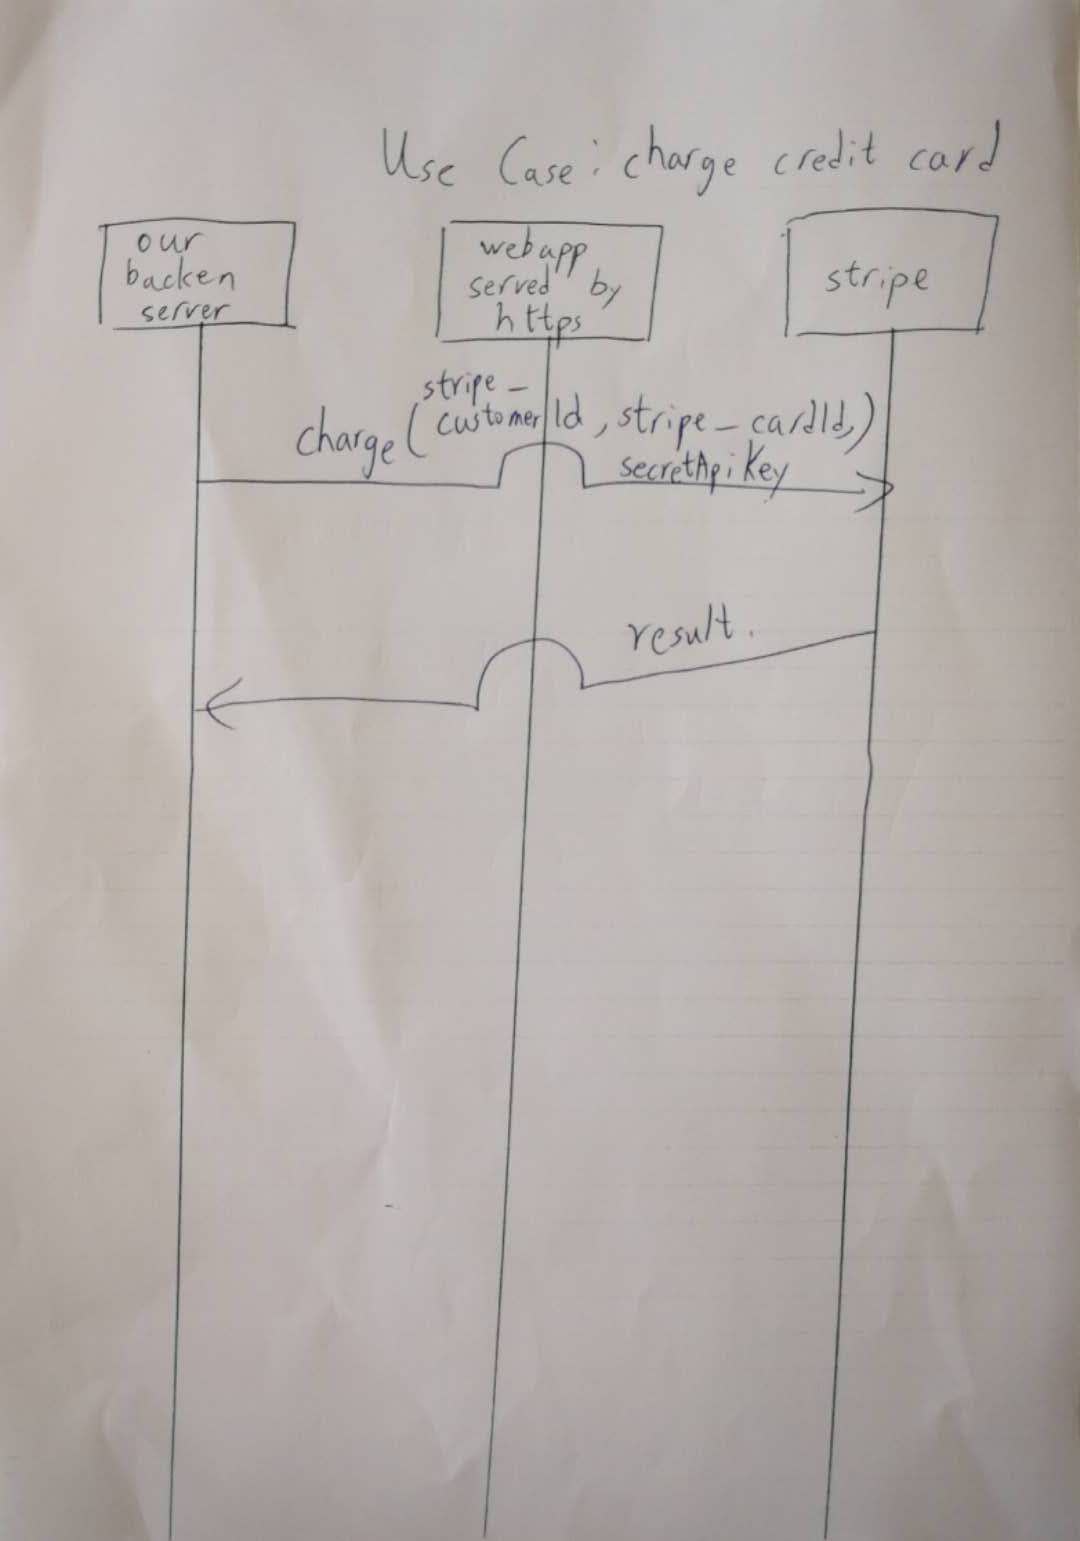 Use Case: charge credit card
our
backen
server
webapp
served by
https
stripe
stripe_
charge(customerId, stripe_cardId,)
secretApiKey
result.